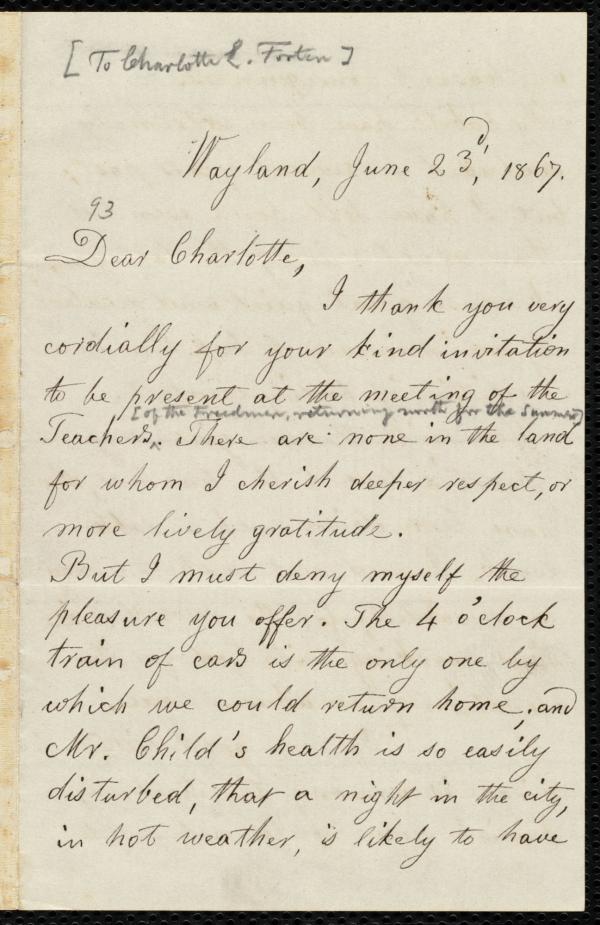 [To Charlotte L. Forten]
Wayland, June 23d, 1867.
93
Dear Charlotte,
I thank you very
cordially for your kind invitation
to be present at the meeting of the
[of the Freedmen, returning north for the Summer]
Teachers. There are none in the land
for whom I cherish deeper respect, or
more lively gratitude.
But I must deny myself the
pleasure you offer. The 4 o'clock
train of cars is the only one by
which we could return home; and
Mr. Child's health is so easily
disturbed, that a night in the city,
in hot weather, is likely to have